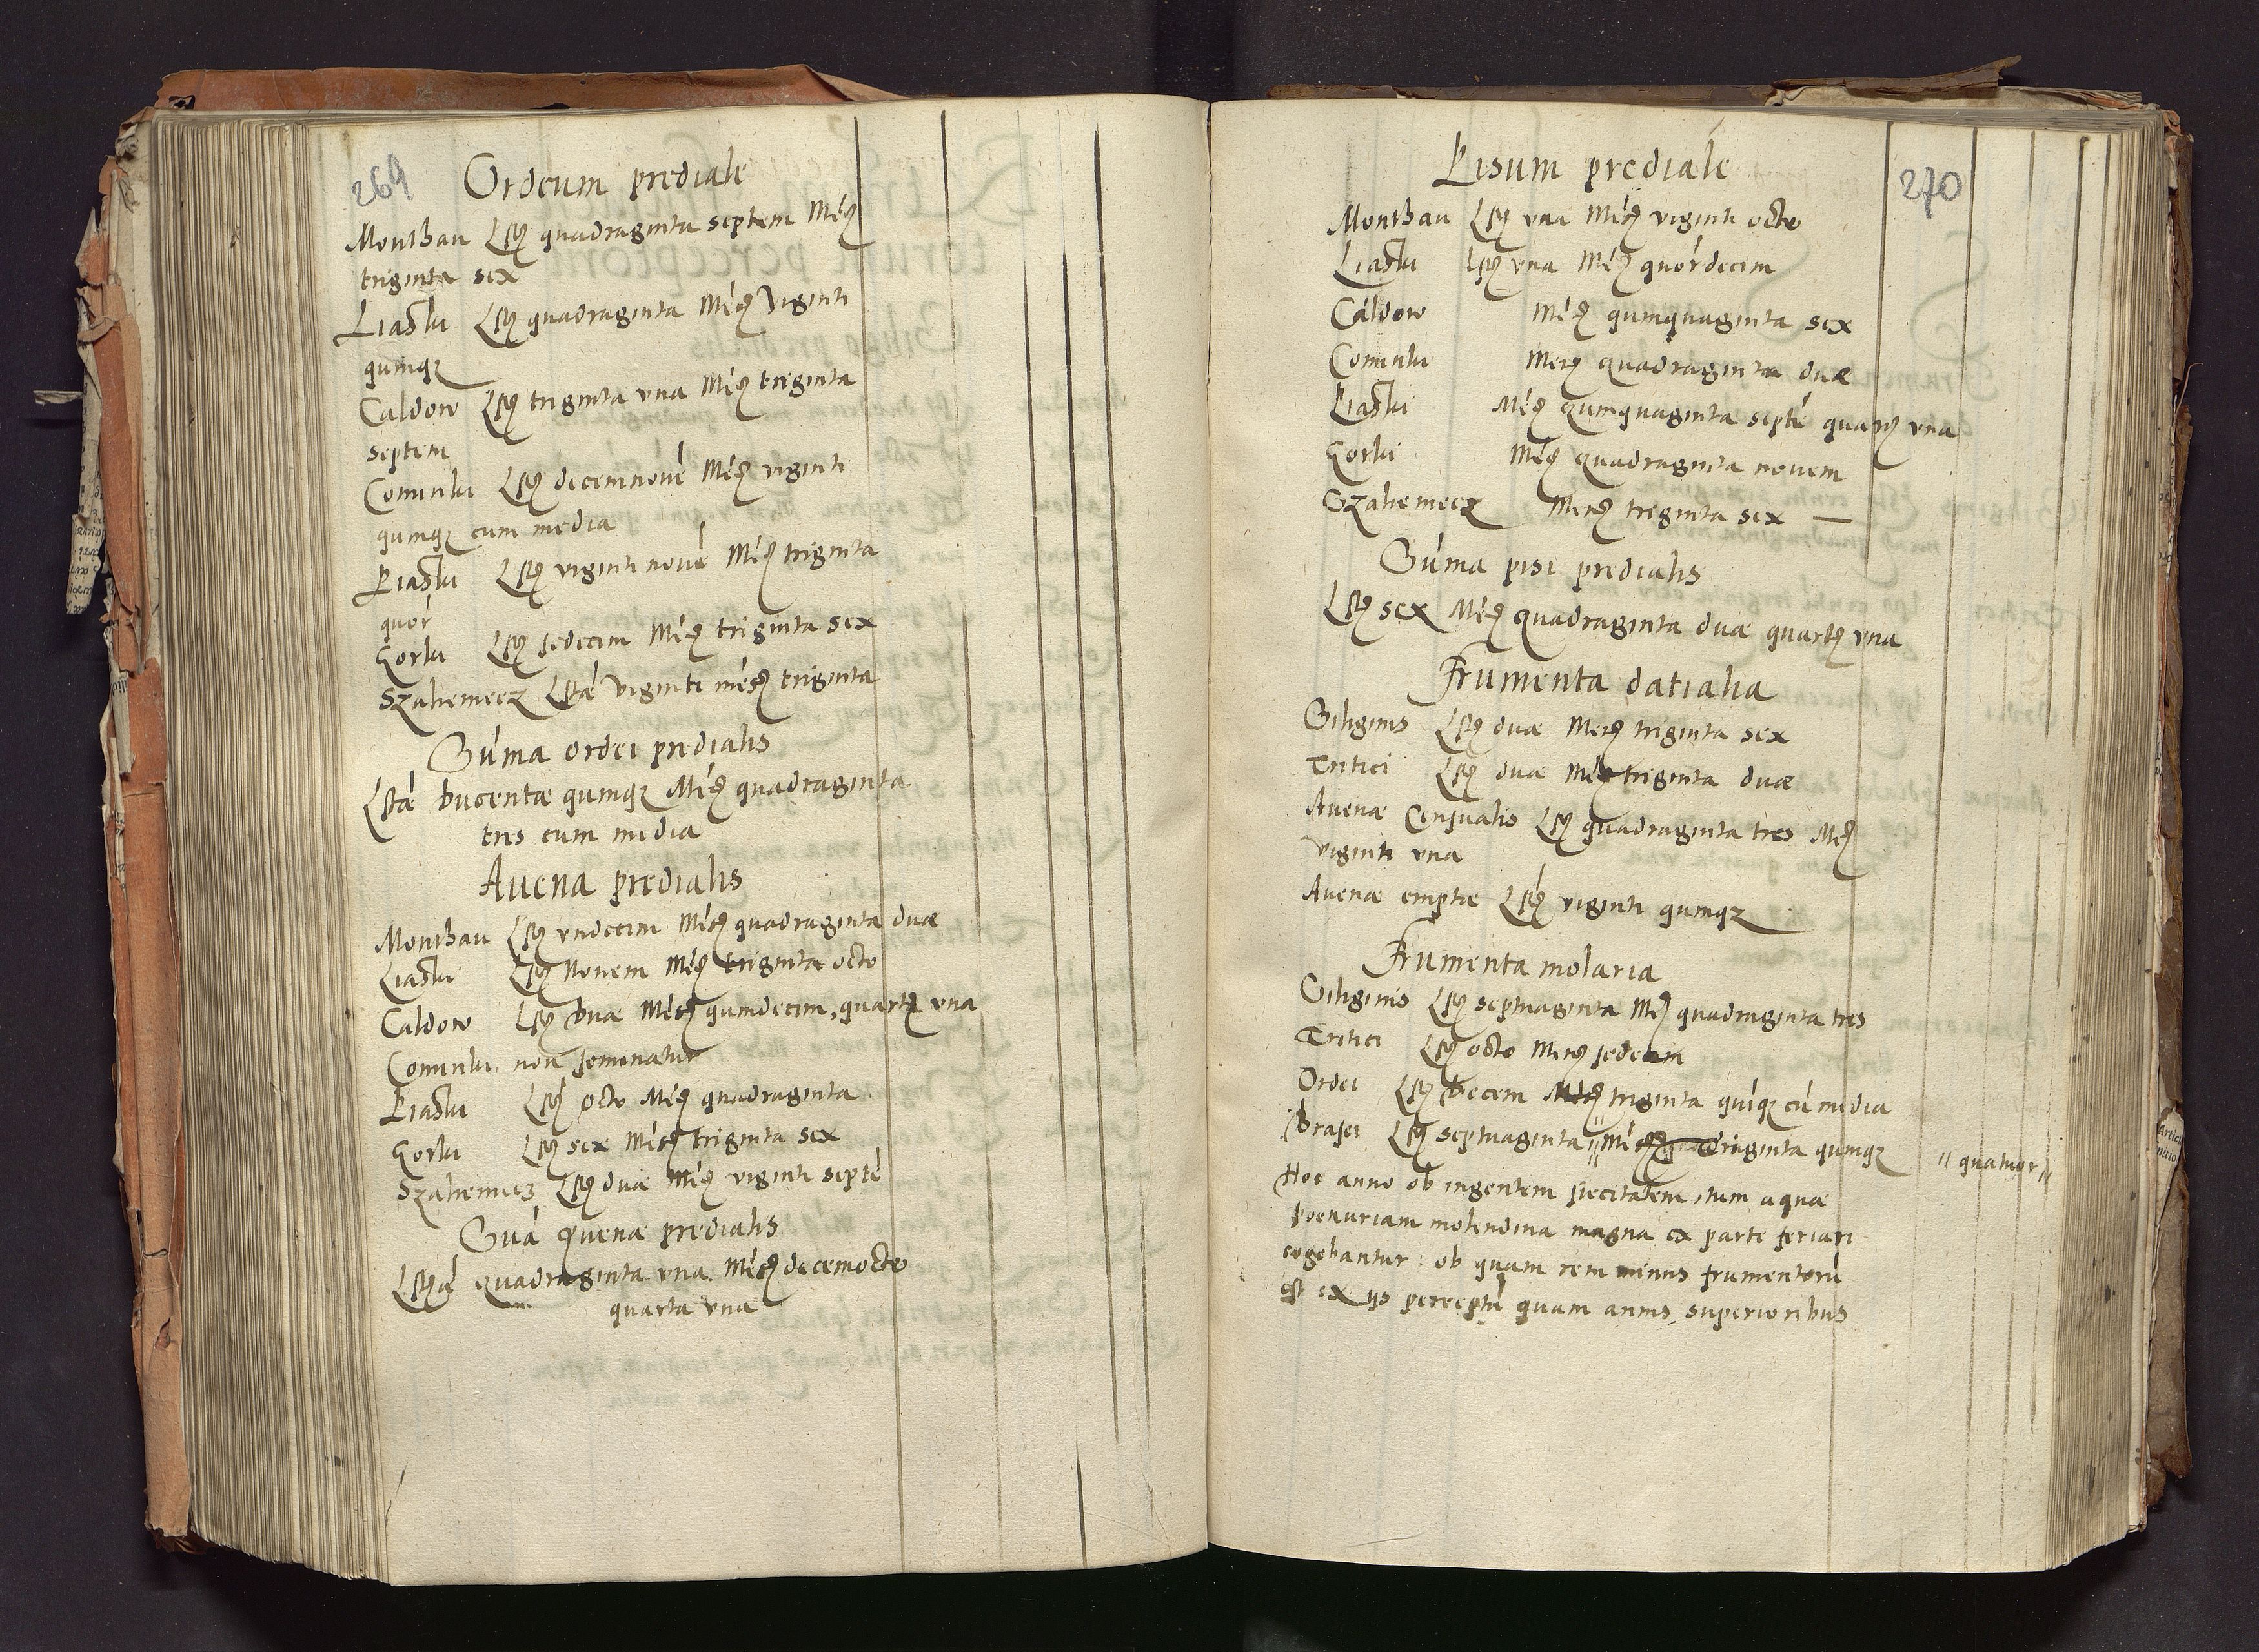 269
Ordeum prediale
Monthau Lʒ quadraginta septem Meʒ
triginta sex
Liasku Lʒ quadraginta Meʒ Viginti
quinqʒ
Caldow Lʒ triginta vna Meʒ triginta
septem
Comuulu Lʒ decemnoué Meʒ viginti
quinqʒ cum media
Piasku Lʒ viginti noué Meʒ triginta
quór
Gorku Lʒ sedecim Meʒ triginta sex
Szahemecz Lstae Viginti mésʒ triginta
Súma ordei predialis
Lstae ducentae quinqʒ Meʒ quadraginta
tres cum media
Auena predialis
Monthau Lʒ vndecim Meʒ quadraginta duae
Liasku Lʒ Nouem Meʒ triginta octo
Caldow Lʒ duae Mesʒ quindecim, quartʒ vna
non seminatur
Piasku Lʒ octo Meʒ quadraginta
Gorku Lʒ sex Mesʒ triginta sex
Szahemecz Lʒ duae Meʒ viginti septé
Suá auenae predialis
quadraginta vna Mesʒ decemocto
quarta vna
270
Pisum prediale
Monthau Lʒ vna Meʒ viginti octo
Liasku Lʒ vna Meʒ quórdecim
Caldow Meʒ quinquaginta sex
Mesʒ quadraginta duae
Piasku Meʒ quinquaginta septé quarʒ vna
Gorku Meʒ quadraginta nouem
Szahemecz Mesʒ triginta sex —
Súma pisi predialis
Lʒ sex Meʒ quadraginta duae quartʒ vna
Frumenta datialia
Siliginis Lʒ duae Mesʒ triginta sex
Tritici Lʒ duae Meʒ triginta duae
Auenae Censualis Lʒ quadraginta tres Meʒ
viginti vna
Auenae emptae Lʒ viginti quinqʒ
Frumenta molaria
Siliginis Lʒ septuaginta Meʒ quadraginta tres
Tritici Lʒ octo Mesʒ sedecim
Ordei Lʒ decem Mesʒ triginta quíqʒ cú media
Brasei Lʒ septuaginta " Mesʒ triginta quinqʒ " quatuor "
Hoc anno ob ingentem siccitatem, tum aquae
poenuriam molendina magna ex parte feriari
cogebantur: ob quam rem minus frumentorú
est ex ijs perceptú quam annis superioribus